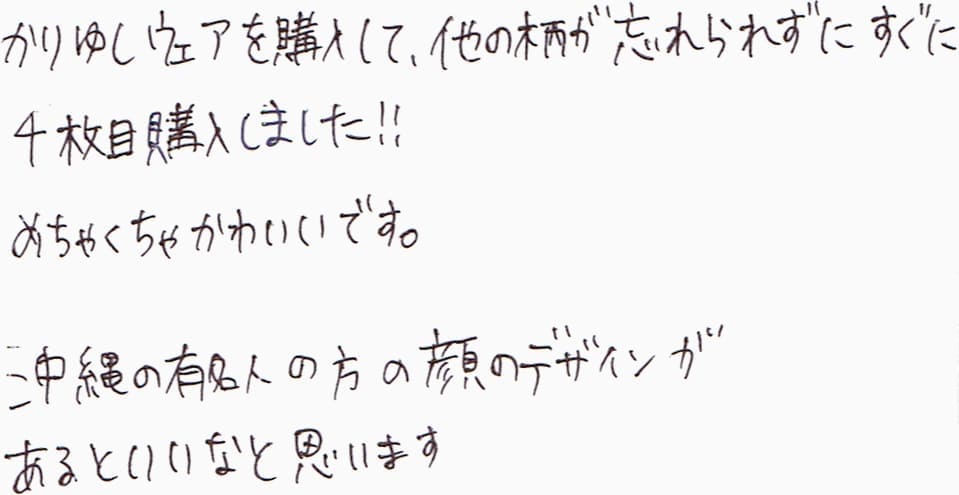 かりゆしウェアを購入して、他の柄が忘れられずにすぐに
4枚目購入しました!!
めちゃくちゃかわいいです。
沖縄の有名人の方の顔のデザインが
あるといいなと思います